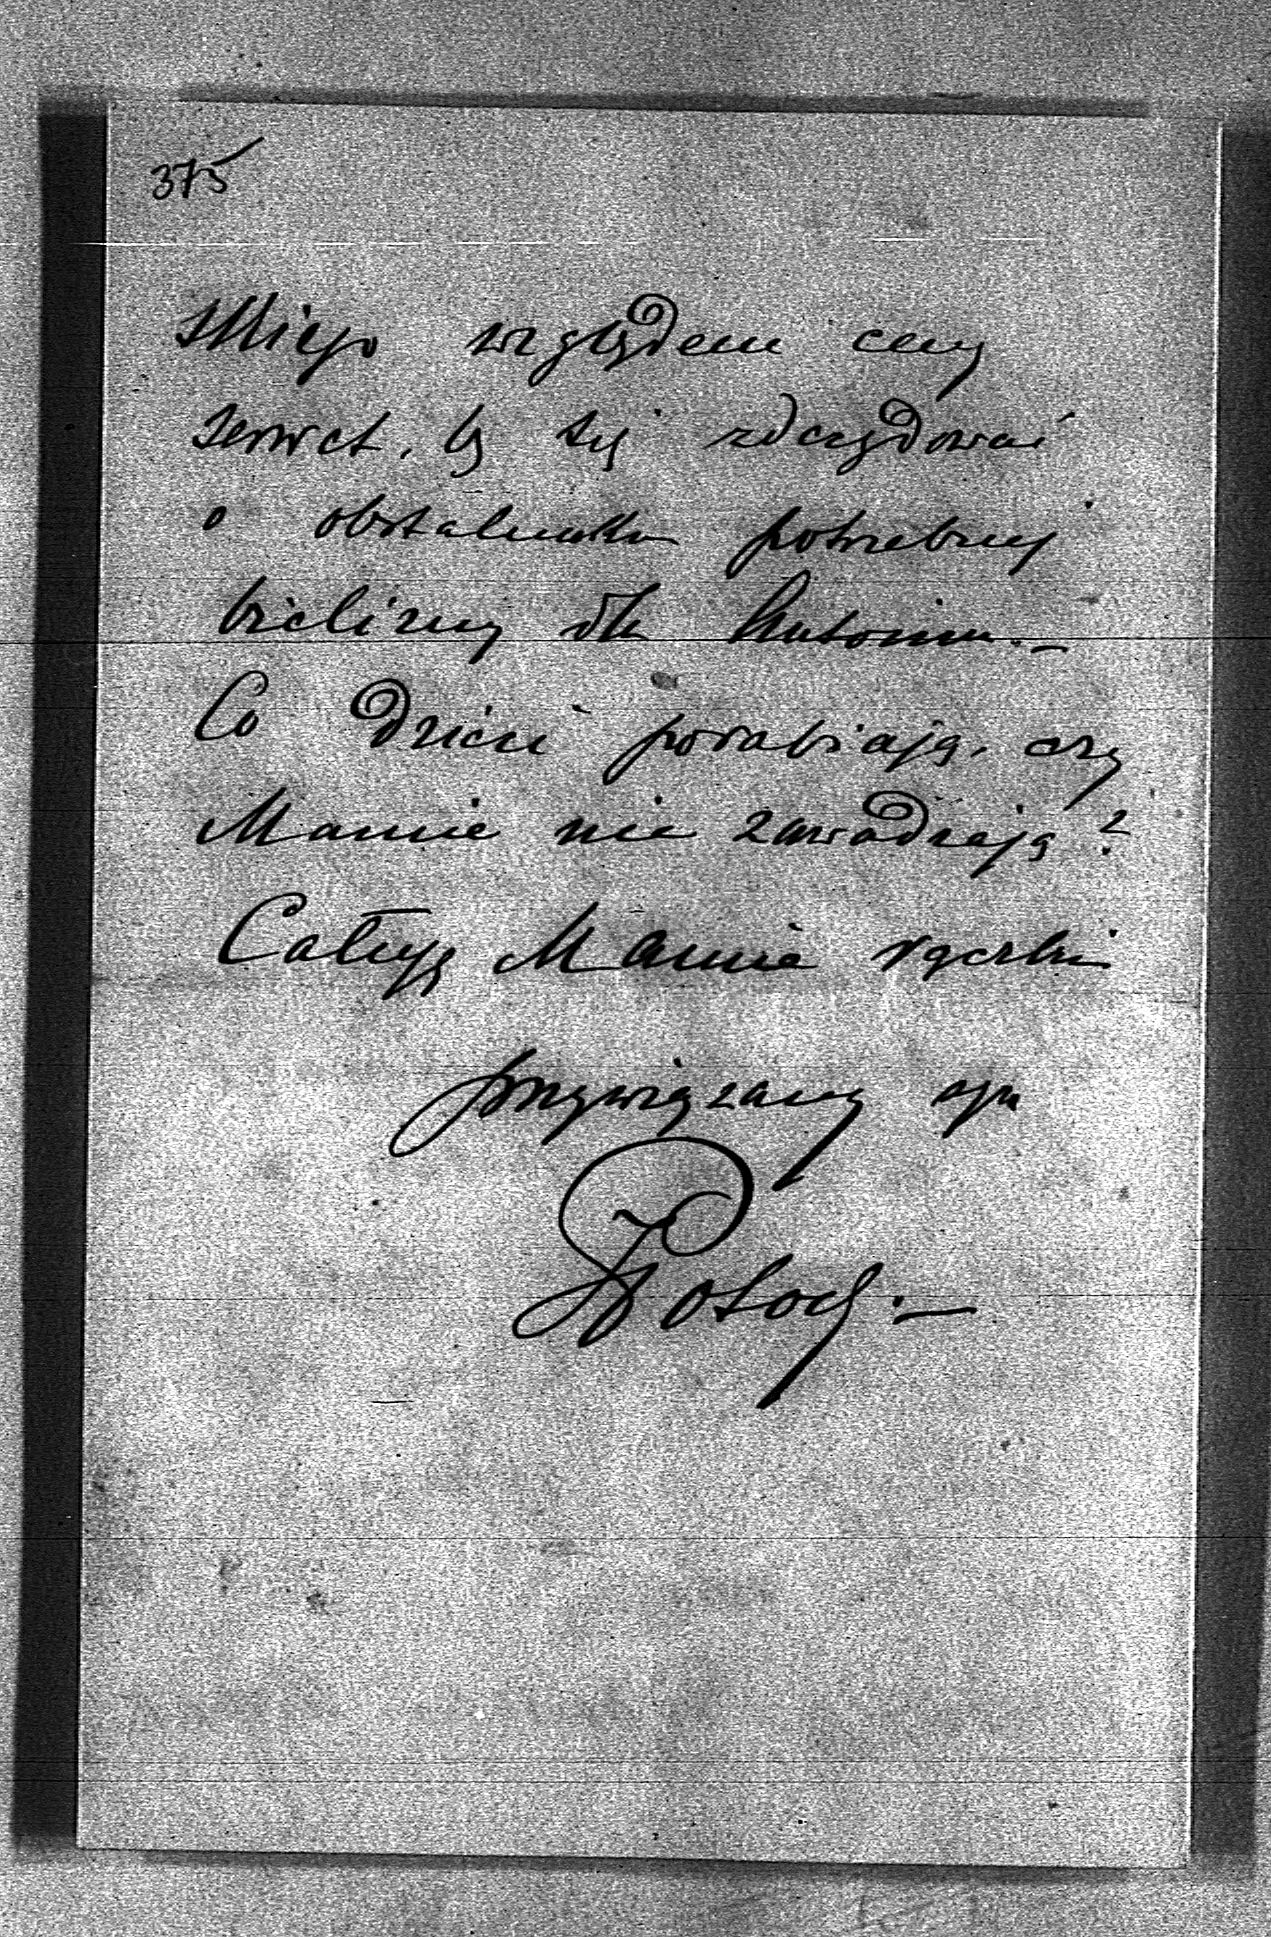 375
skiego względem ceny
serwet, by się zdecydować
o obstalunku potrzebnej
bielizny dla Antonin. —
Co dzieci porabiają, czy
Mamie nie zawadzają?
Całuję Mamie rączki
przywiązany syn
RPotocki. —